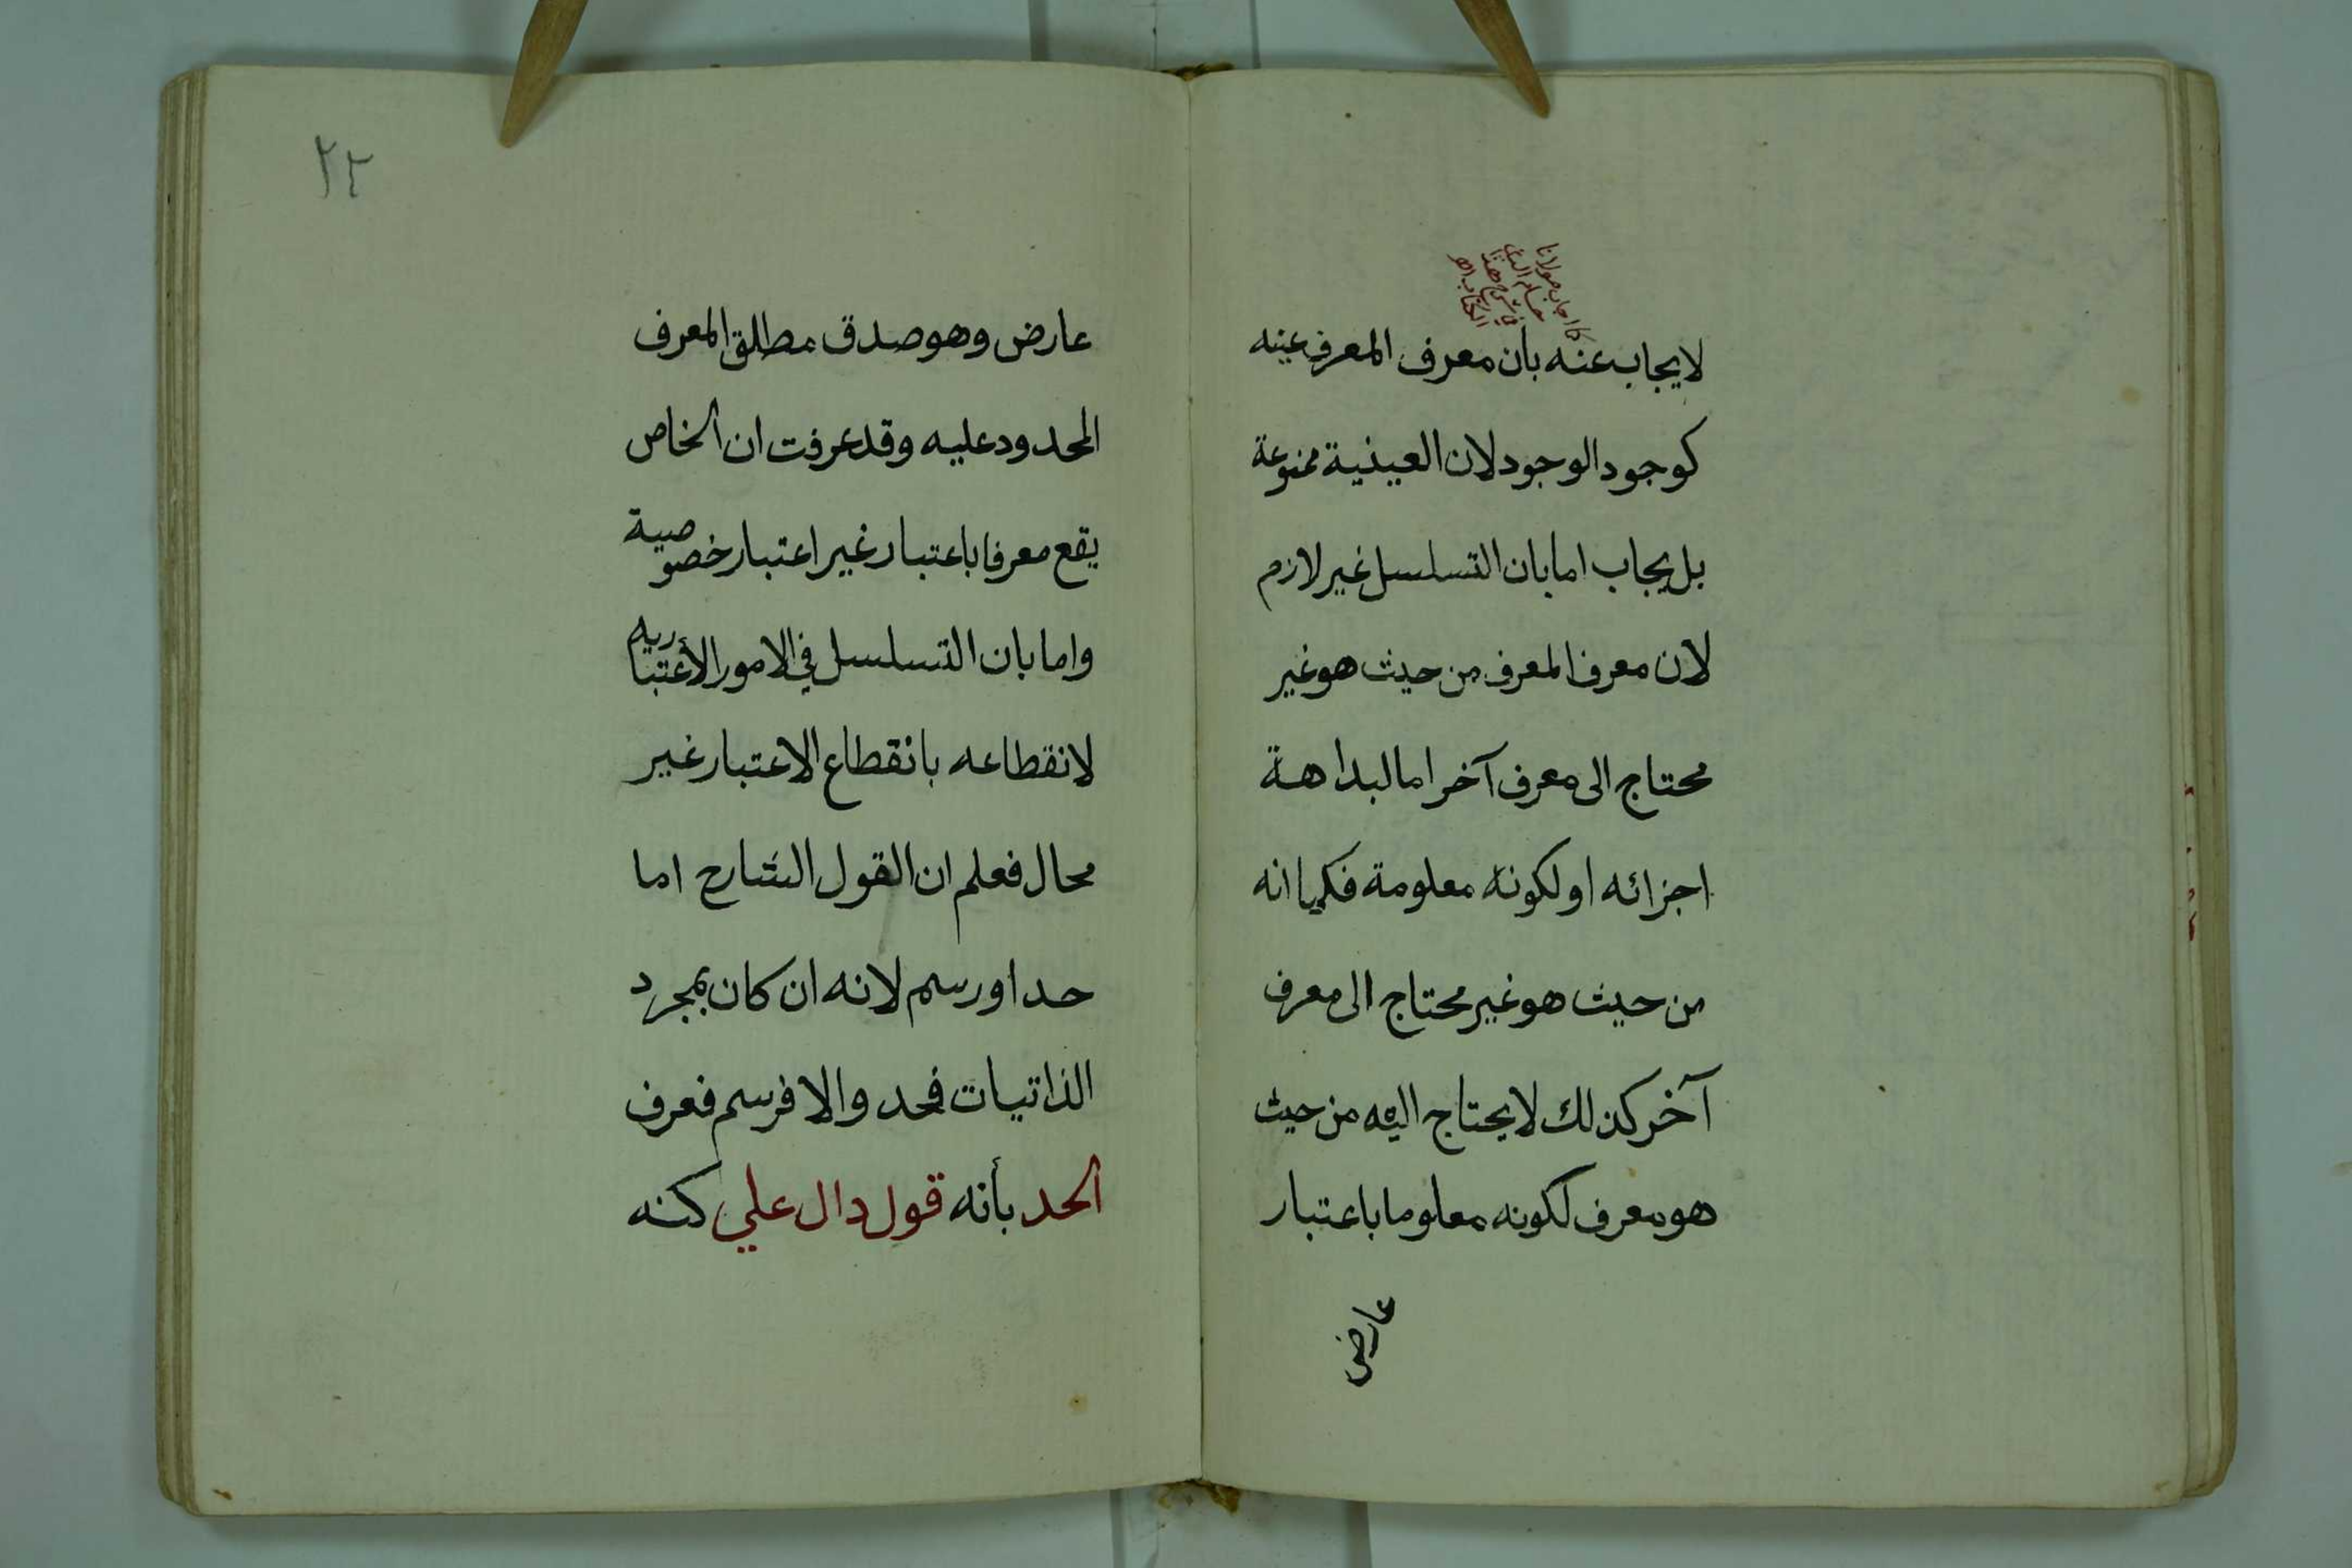 كما اجاب مولانا
حسام الدين
في شرح هذا
الكتاب اهـ
لايجاب عنه بان معرف المعرف عينه
كوجود الوجود لان العينية ممنوعة
بل يجاب اما بان التسلسل غير لازم
لان معرف المعرف من حيث هو غير
محتاج الى معرف آخر اما لبداهة
اجزائه او لكونه معلومة فكما انه
من حيث هو غير محتاج الى معرف
آخر كذلك لايحتاج اليه من حيث
هو معرف لكونه معلوما باعتبار
عارض
٢٢
عارض وهو صدق مطلق المعرف
المحدود عليه وقد عرفت ان الخاص
يقع معرفا باعتبار غير اعتبار خصوصية
واما بان التسلسل في الامور الأعتباريه
لانقطاعه بانقطاع الاعتبار غير
محال فعلم ان القول الشارح اما
حد او رسم لانه ان كان بمجرد
الذاتيات فحد والا فرسم فعرف
الحد بأنه قول دال علي كنه